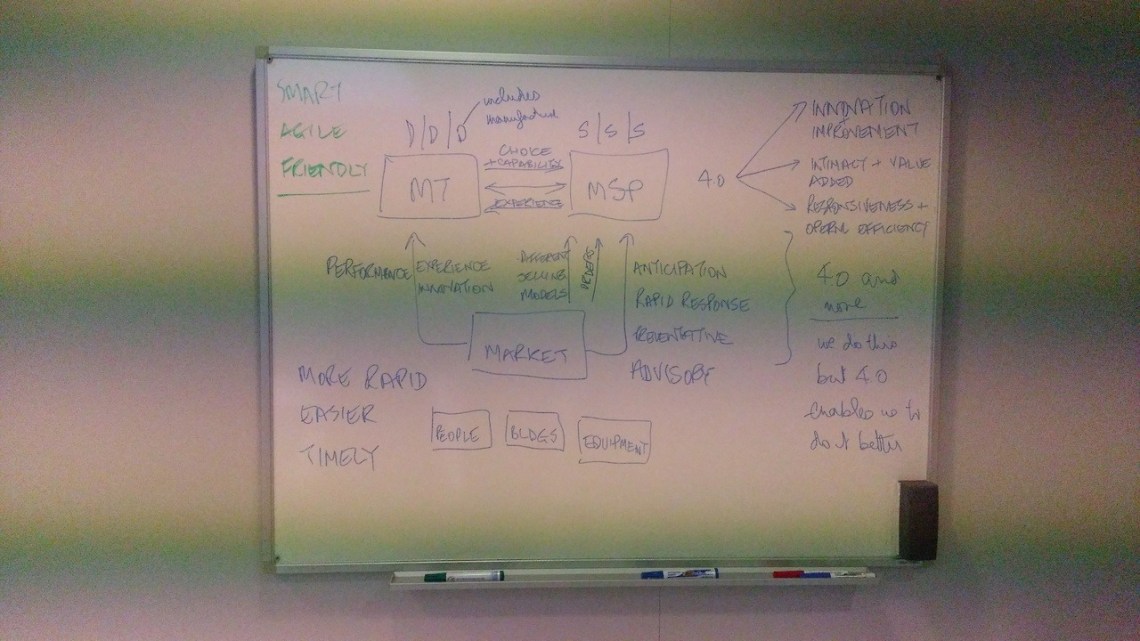 SMART
AGILE
FRIENDLY
D/D/D
includes
manufacture
S/S/S
MT
CHOICE
+CAPABILITY
EXPERIENCE
MSP
4.0
INNOVATION
+
IMPROVEMENT
INTIMACY + VALUE
ADDED
RESPONSIVENESS +
EFFICIENCY
PERFORMANCE
EXPERIENCE
INNOVATION
DIFFERENT
SELLING
MODELS
ORDERS
ANTICIPATION
RAPID RESPONSE
PREVENTATIVE
ADVISORY
4.0 and
more
we do this
but 4.0
enables us to
do it better
MARKET
MORE RAPID
EASIER
TIMELY
PEOPLE
BLDGS
EQUIPMENT